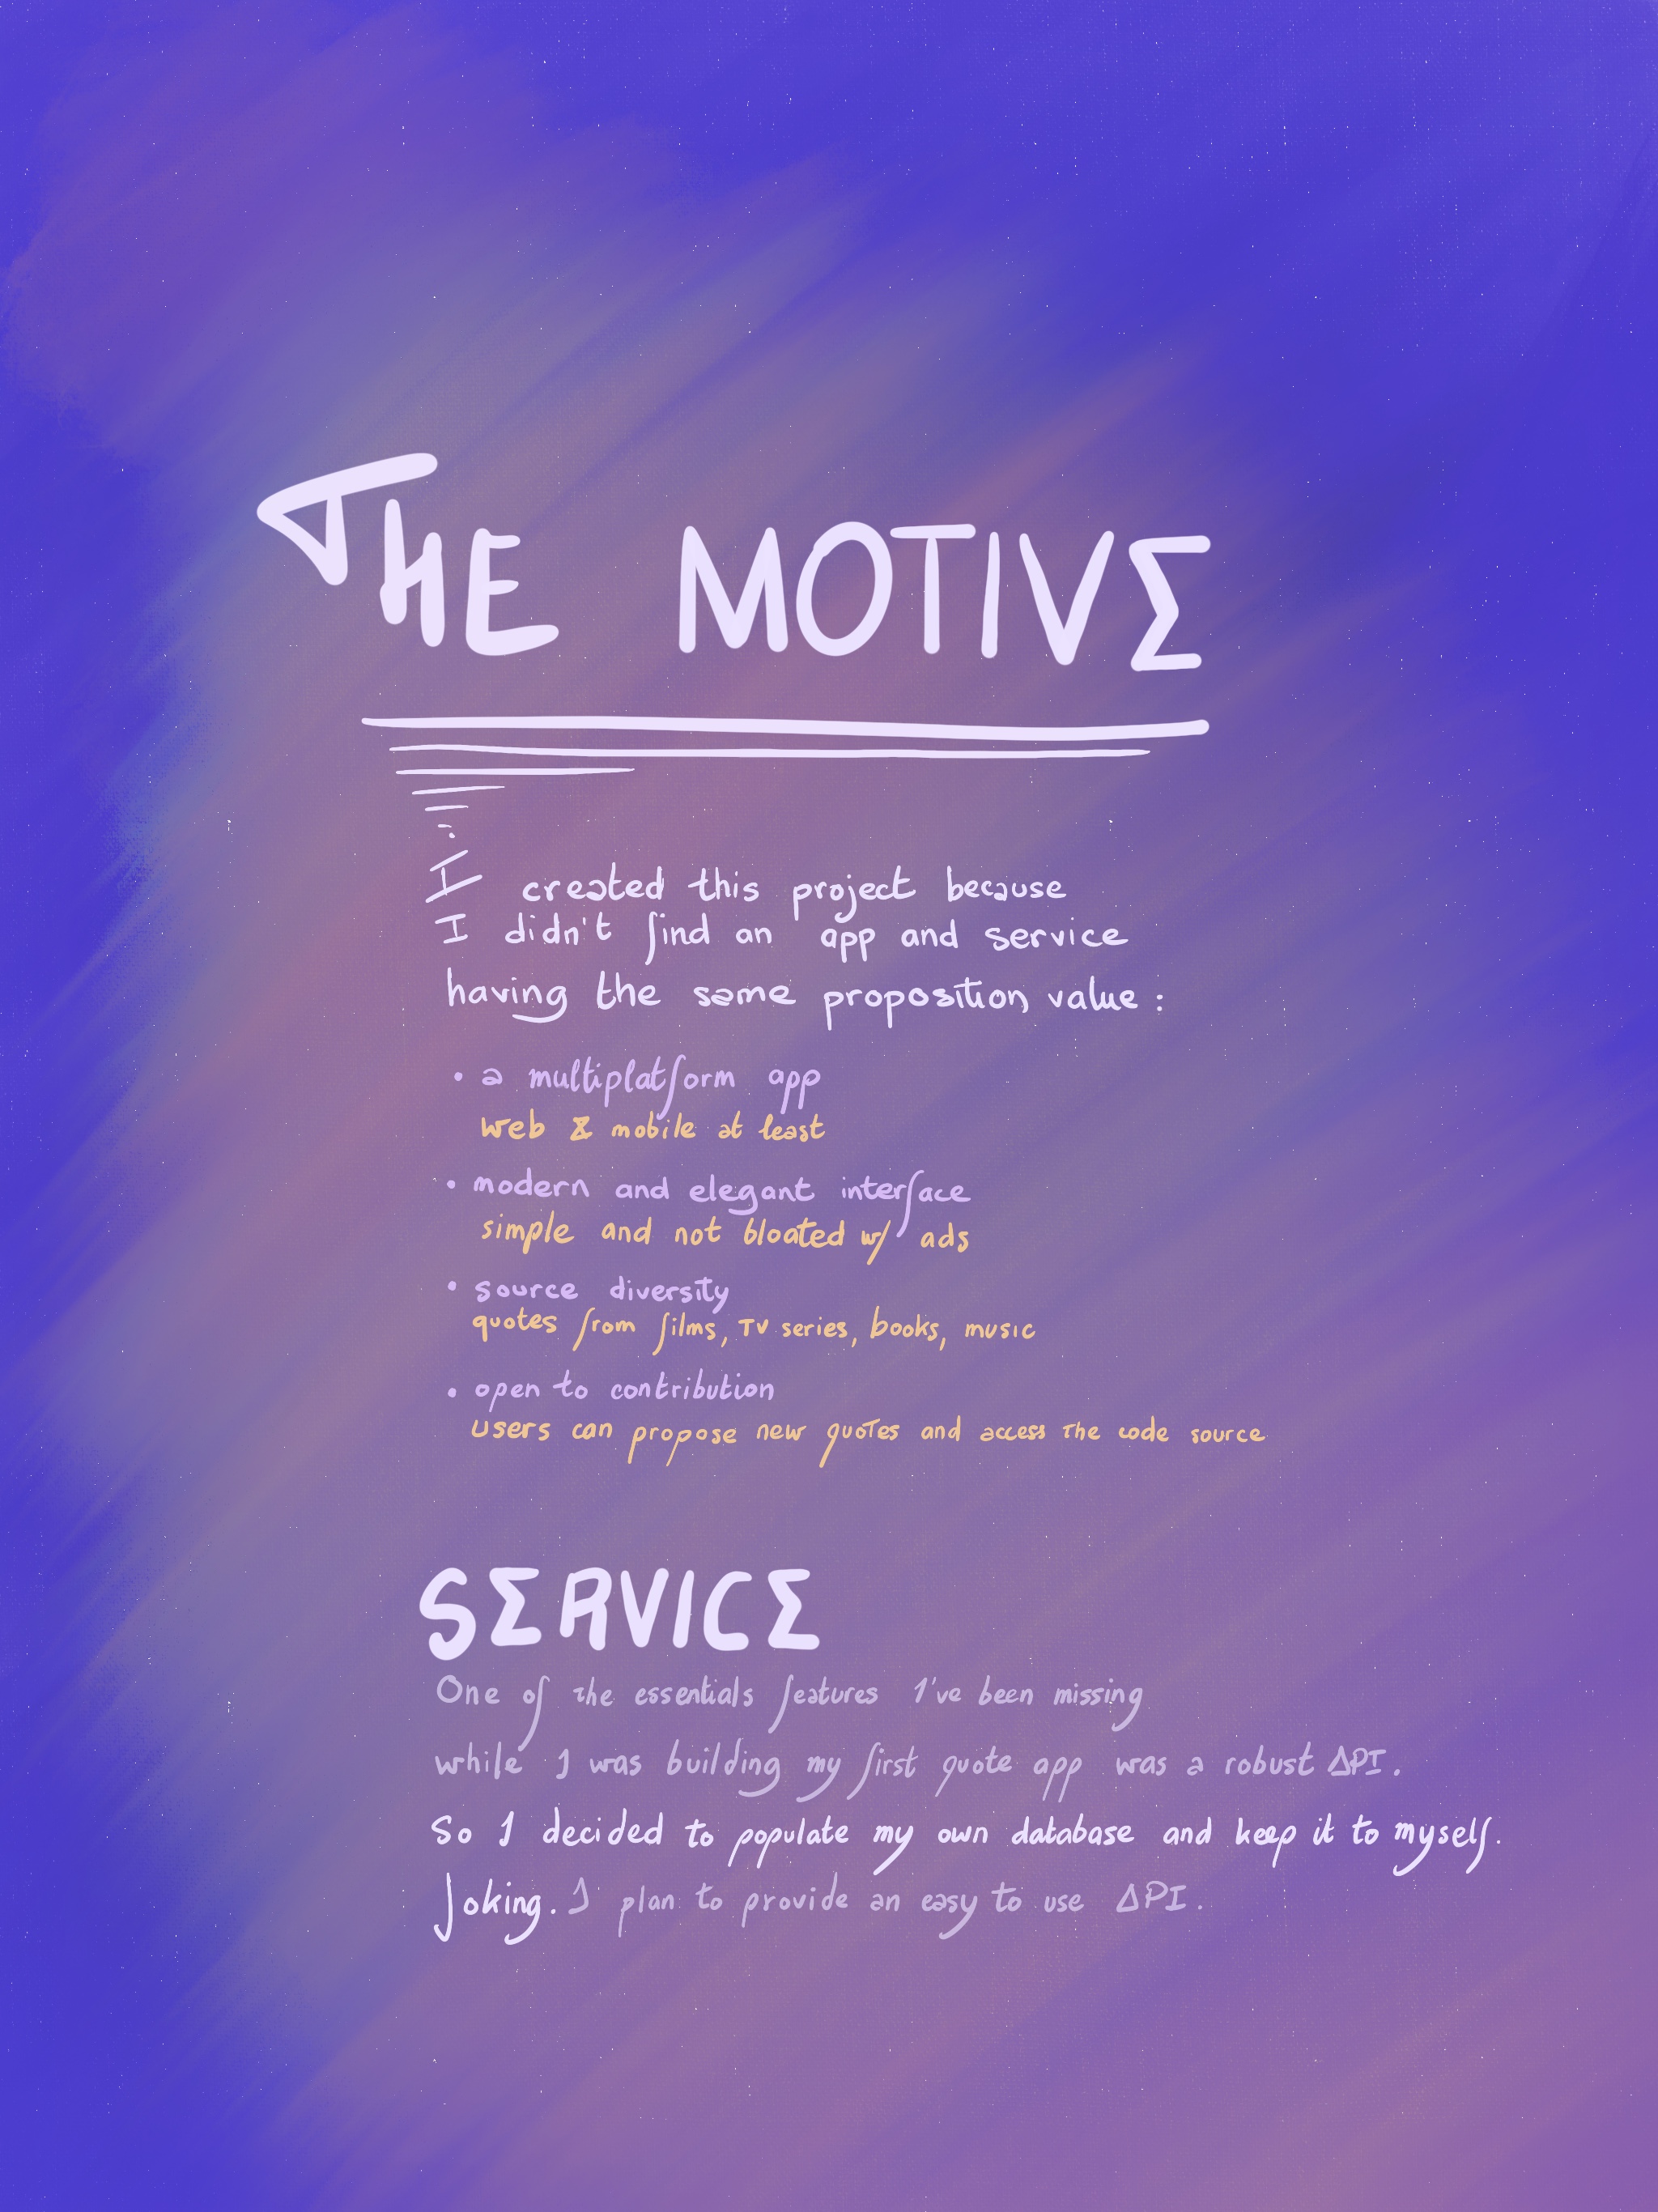 THE MOTIVE
I created this project because
I didn't find an app and service
having the same proposition value :
• a multiplatform app
web & mobile at least
• modern and elegant interface
simple and not bloated w/ ads
• source diversity
quotes from films, TV series, books, music
• open to contribution
users can propose new quotes and access the code source
SERVICE
One of the essentials features I've been missing
while I was building my first quote app was a robust API.
So I decided to populate my own database and keep it to myself.
Joking. I plan to provide an easy to use API.